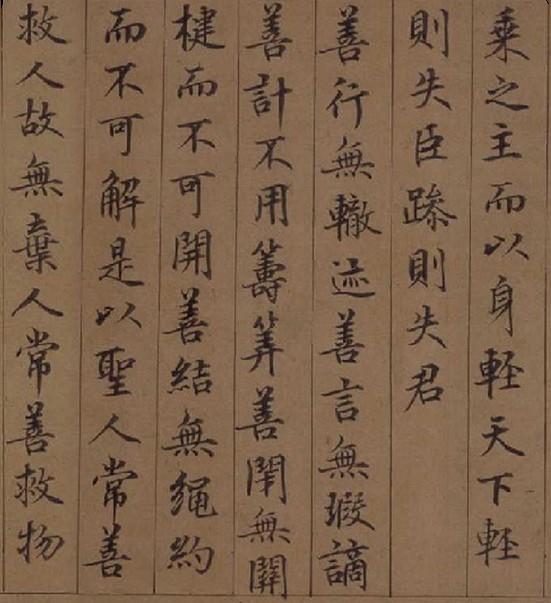 乗之主而以身軽天下軽
則失臣躁則失君
善行無轍迹善言無瑕讁
善計不用籌筭善閇無關
楗而不可開善結無繩約
而不可解是以聖人常善
救人故無棄人常善救物